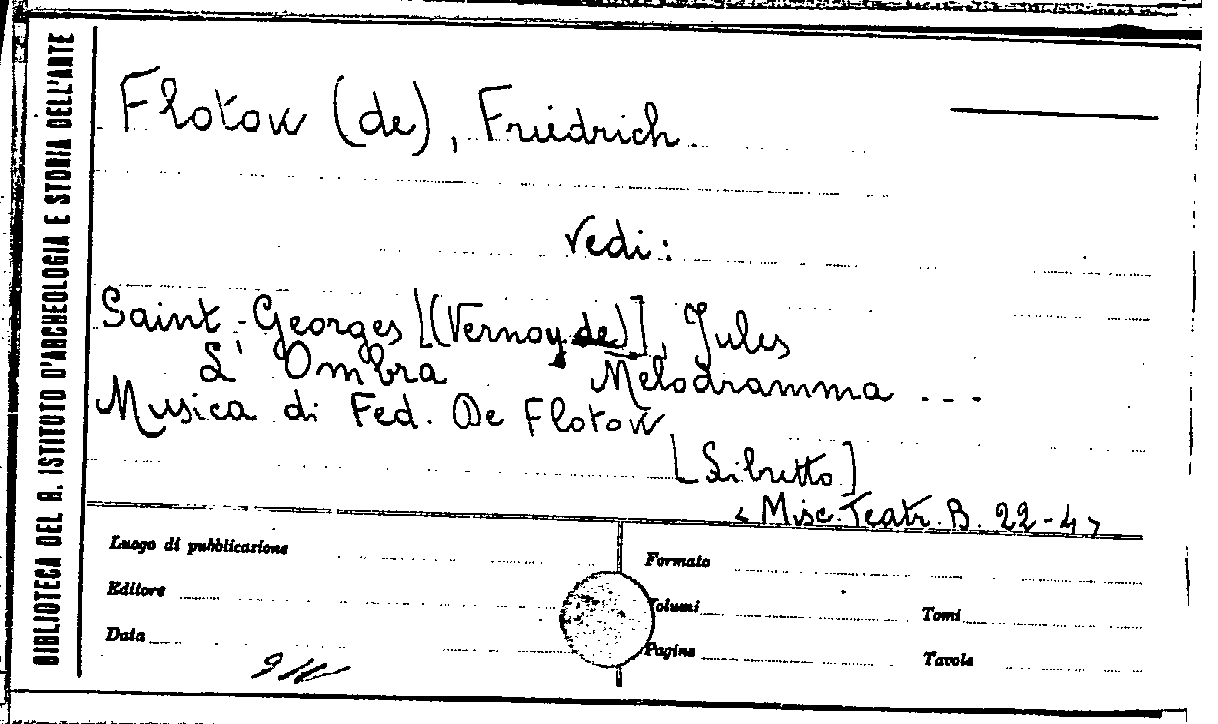 BIBLIOTECA DEL R. ISTITUTO D'ARCHEOLOGIA E STORIA DELL'ARTE
Flotow (de), Friedrich.
Vedi:
Saint-Georges [(Vernoy de)], Jules
L'Ombra Melodramma ...
Musica di Fed. De Flotow
[Libretto]
<Misc. Teatr. B. 22-4>
Luogo di pubblicazione
Formato
Editore
Volumi
Tomi
Data
Pagine
Tavole